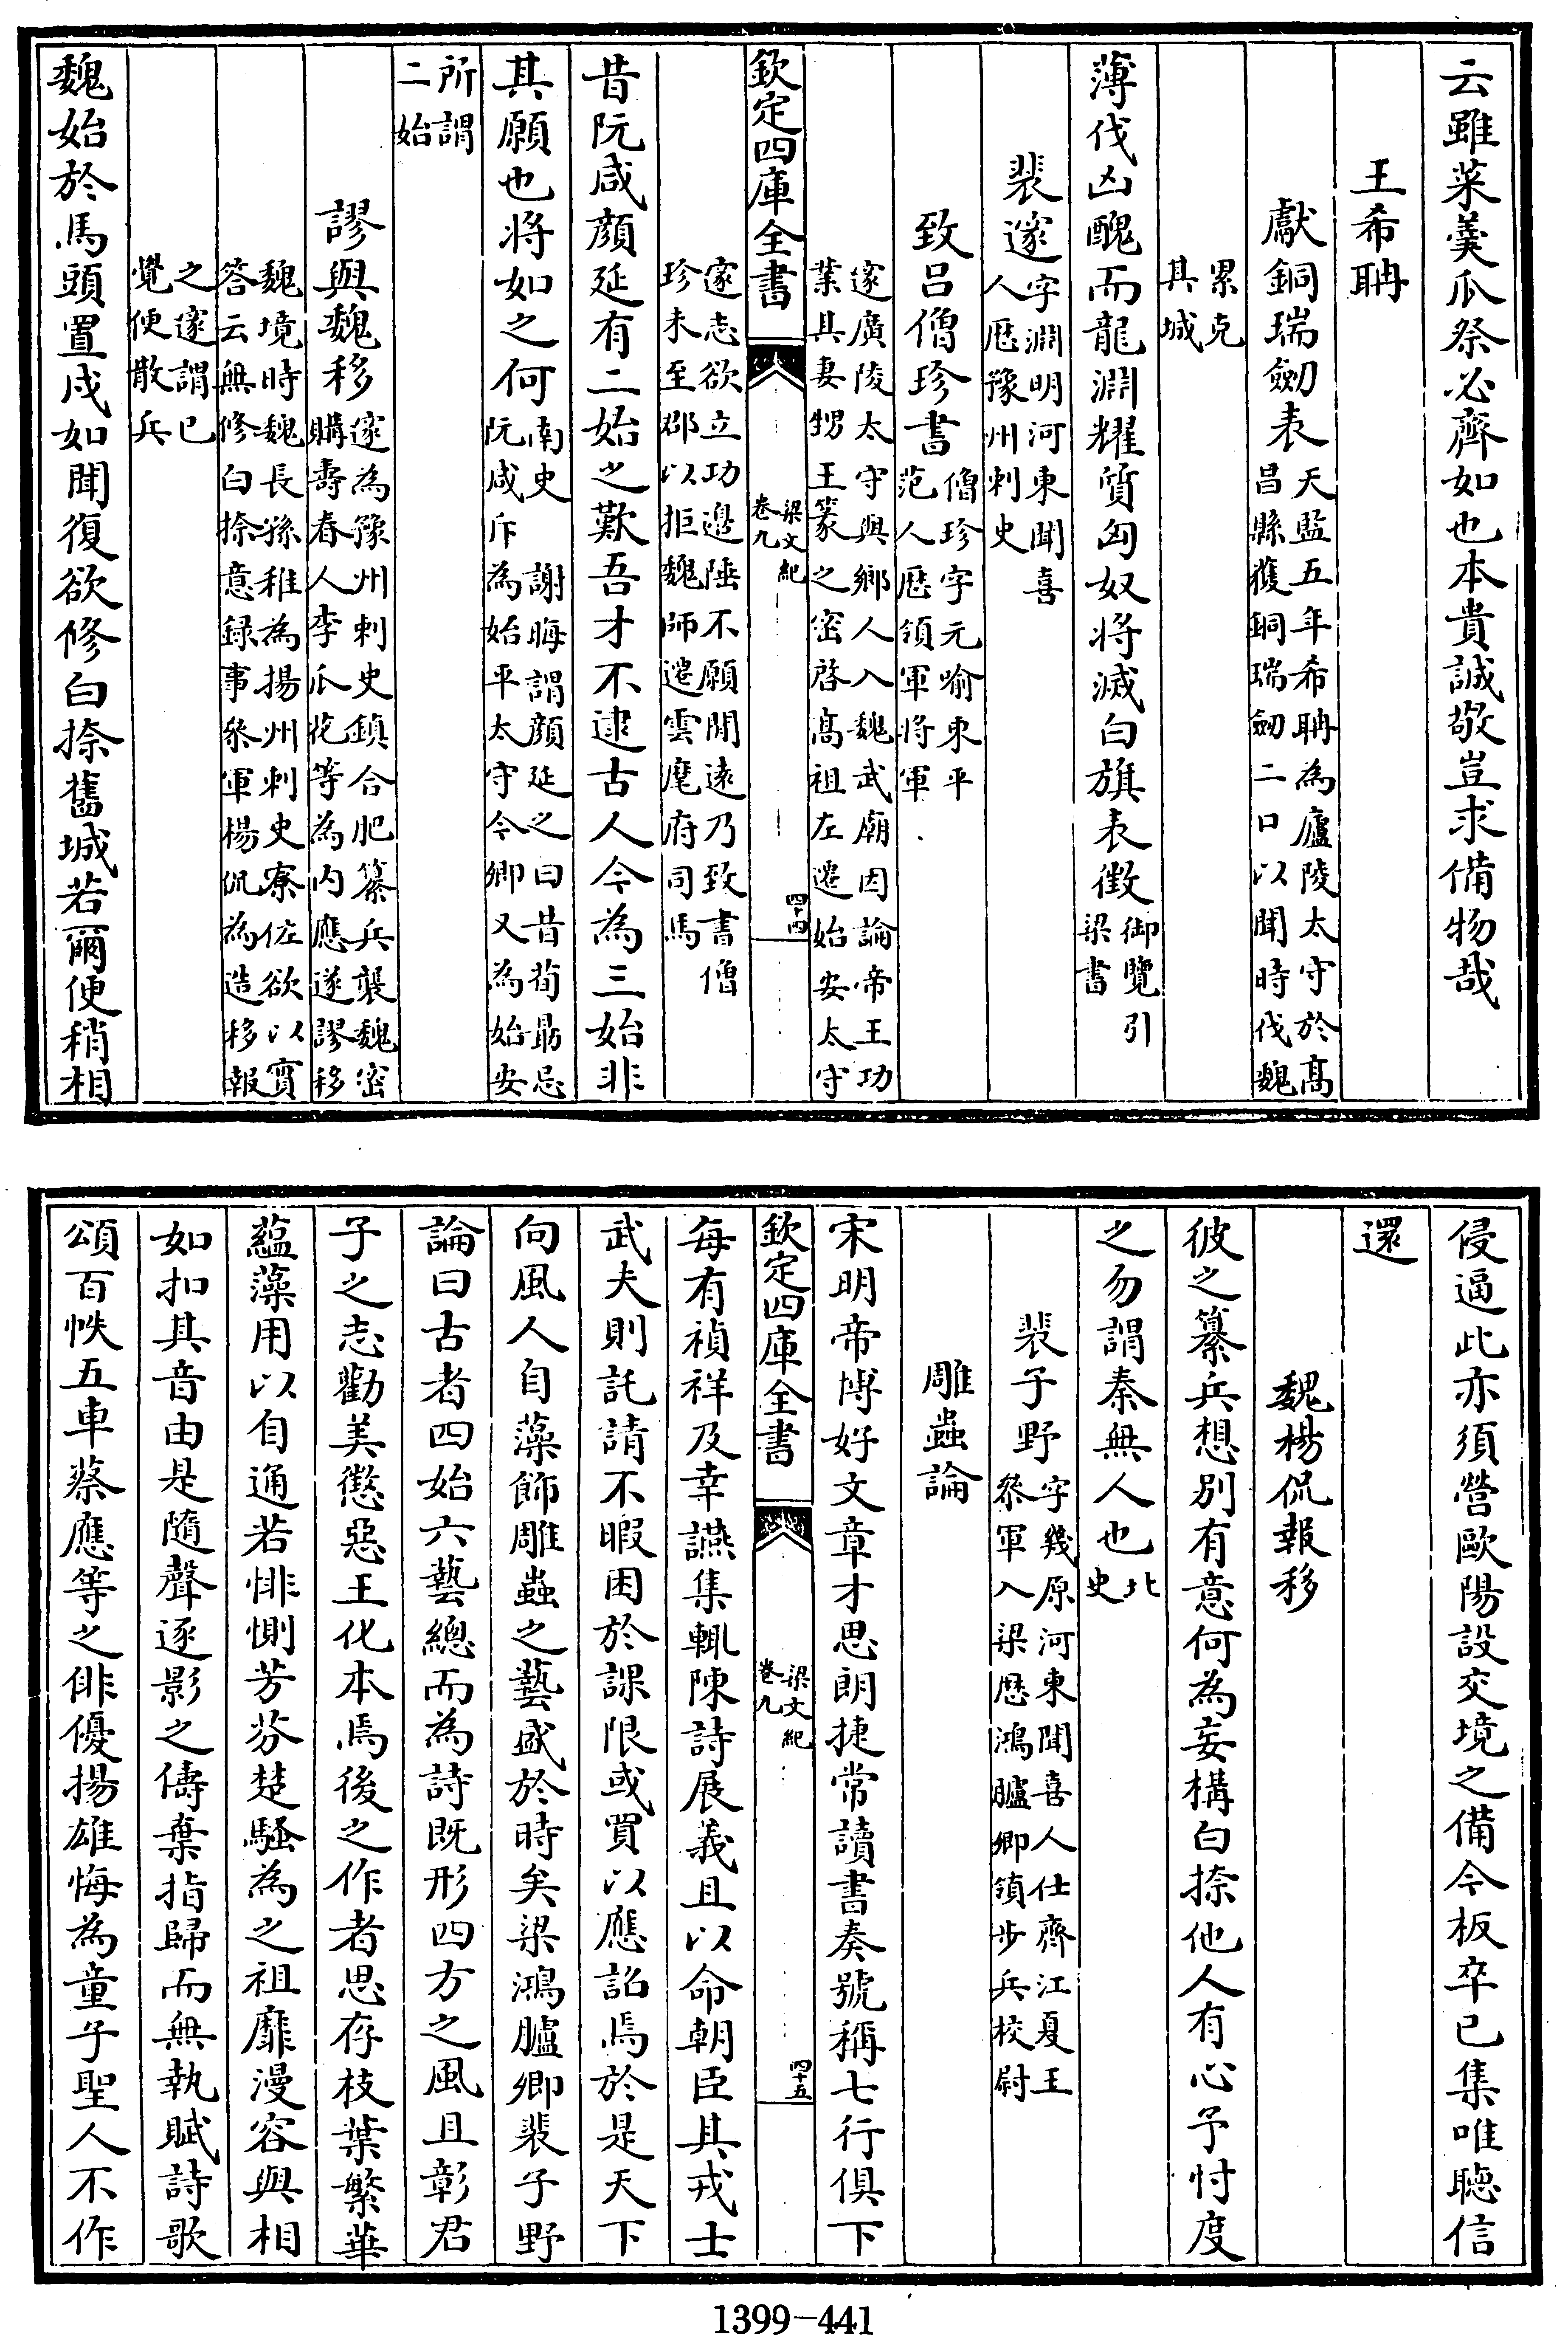 云雖菜羮瓜祭必齊如也本貴誠敬豈求備物哉
王希聃
獻銅瑞劒表
天監五年希聃為廬陵太守於髙
昌縣獲銅瑞劒二口以聞時伐魏
累克
其城
薄伐凶醜而龍淵耀質匈奴將滅白旗表徴
御覽引
梁書
裴邃
字淵明河東聞喜
人歴豫州刺史
致吕僧珍書
僧珍字元喻東平
范人歴領軍將軍
邃廣陵太守與鄉人入魏武廟因論帝王功
業其妻甥王篆之密啓髙祖左遷始安太守
欽定四庫全書
梁文紀
卷九
四十四
邃志欲立功邉陲不願閒逺乃致書僧
珍未至郡以拒魏師遷雲麾府司馬
昔阮咸顔延有二始之歎吾才不逮古人今為三始非
其願也将如之何
南史 謝晦謂顔延之曰昔荀朂忌
阮咸斥為始平太守今卿又為始安
所謂
二始
謬與魏移
邃為豫州刺史鎮合肥纂兵襲魏密
購壽春人李瓜花等為内應遂謬移
魏境時魏長孫稚為揚州刺史寮佐欲以實
答云無修白捺意録事叅軍楊侃為造移報
之邃謂已
覺便散兵
魏始於馬頭置戍如聞復欲修白捺舊城若爾便稍相
侵逼此亦須營歐陽設交境之備今板卒已集唯聴信
還
魏楊侃報移
彼之纂兵想别有意何為妄構白捺他人有心予忖度
之勿謂秦無人也
北
史
裴子野
字幾原河東聞喜人仕齊江夏王
叅軍入梁歴鴻臚卿領步兵校尉
雕蟲論
宋明帝博好文章才思朗捷常讀書奏號稱七行俱下
欽定四庫全書
梁文紀
卷九
四十五
每有禎祥及幸讌集輒陳詩展義且以命朝臣其戎士
武夫則託請不暇困於課限或買以應詔焉於是天下
向風人自藻飾雕蟲之藝盛於時矣梁鴻臚卿裴子野
論曰古者四始六藝總而為詩既形四方之風且彰君
子之志勸美懲惡王化本焉後之作者思存枝葉繁華
蘊藻用以自通若悱惻芳芬楚騷為之祖靡漫容與相
如扣其音由是隨聲逐影之儔棄指歸而無執賦詩歌
頌百帙五車蔡應等之俳優揚雄悔為童子聖人不作
1399-441